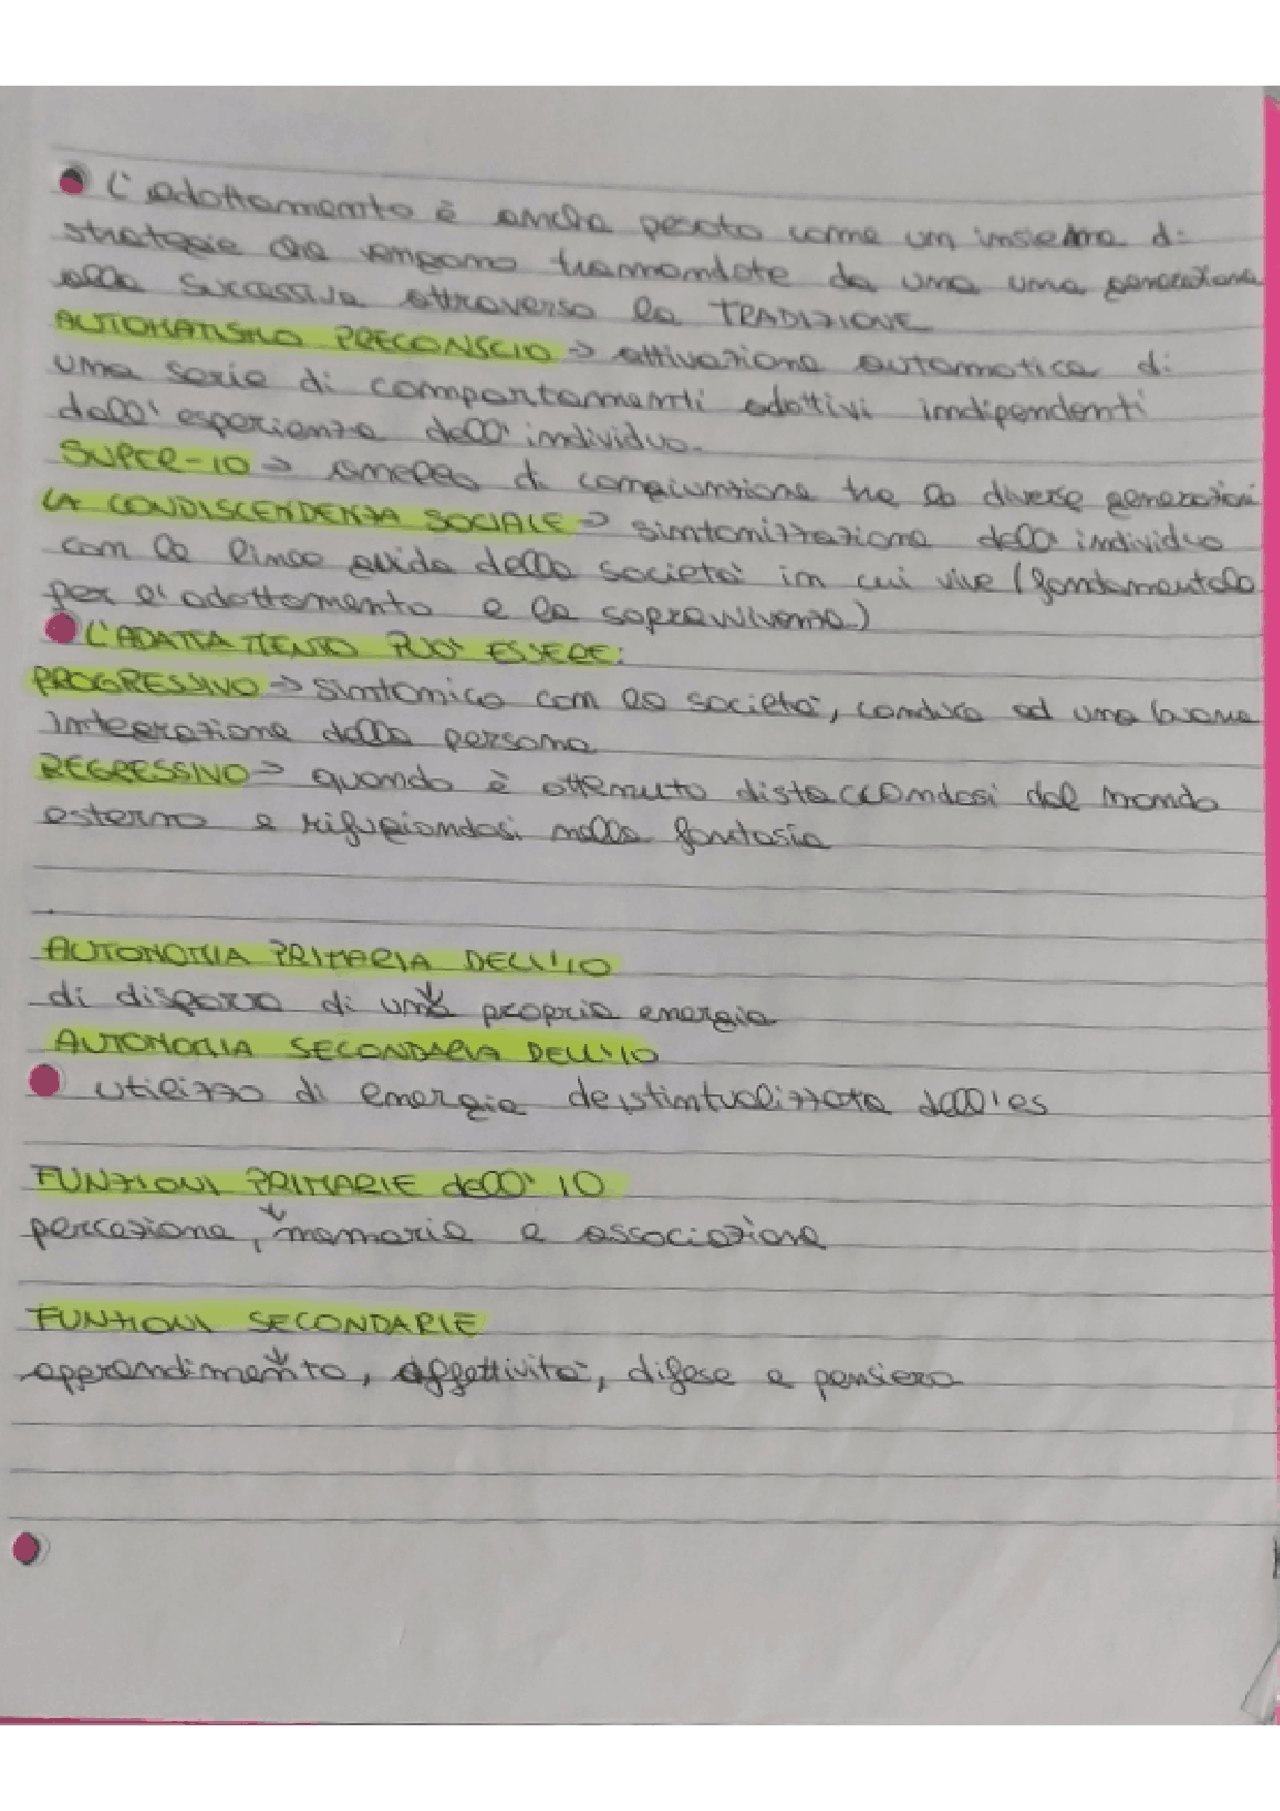 L'adattamento è anche pesato come un insieme di
strategie che vengono tramandate da una una generazione
alla successiva attraverso la TRADIZIONE
AUTOMATISMO PRECONSCIO → attivazione automatica di
una serie di comportamenti adattivi indipendenti
dall'esperienza dell'individuo.
SUPER-IO → anello di congiunzione tra le diverse generazioni
LA CONDISCENDENZA SOCIALE → sintonizzazione dell'individuo
con le linee guida della società in cui vive (fondamentale
per l'adattamento e la sopravvivenza)
L'ADATTAMENTO PUO' ESSERE:
PROGRESSIVO → sintonico con la società, conduce ad una buona
integrazione della persona
REGRESSIVO → quando è ottenuto distaccandosi dal mondo
esterno e rifugiandosi nella fantasia
AUTONOMIA PRIMARIA DELL'IO
di disporre di una propria energia
AUTONOMIA SECONDARIA DELL'IO
utilizzo di energia deistintualizzata dall'es
FUNZIONI PRIMARIE dell'IO
percezione, memoria e associazione
FUNZIONI SECONDARIE
apprendimento, affettività, difese e pensiero